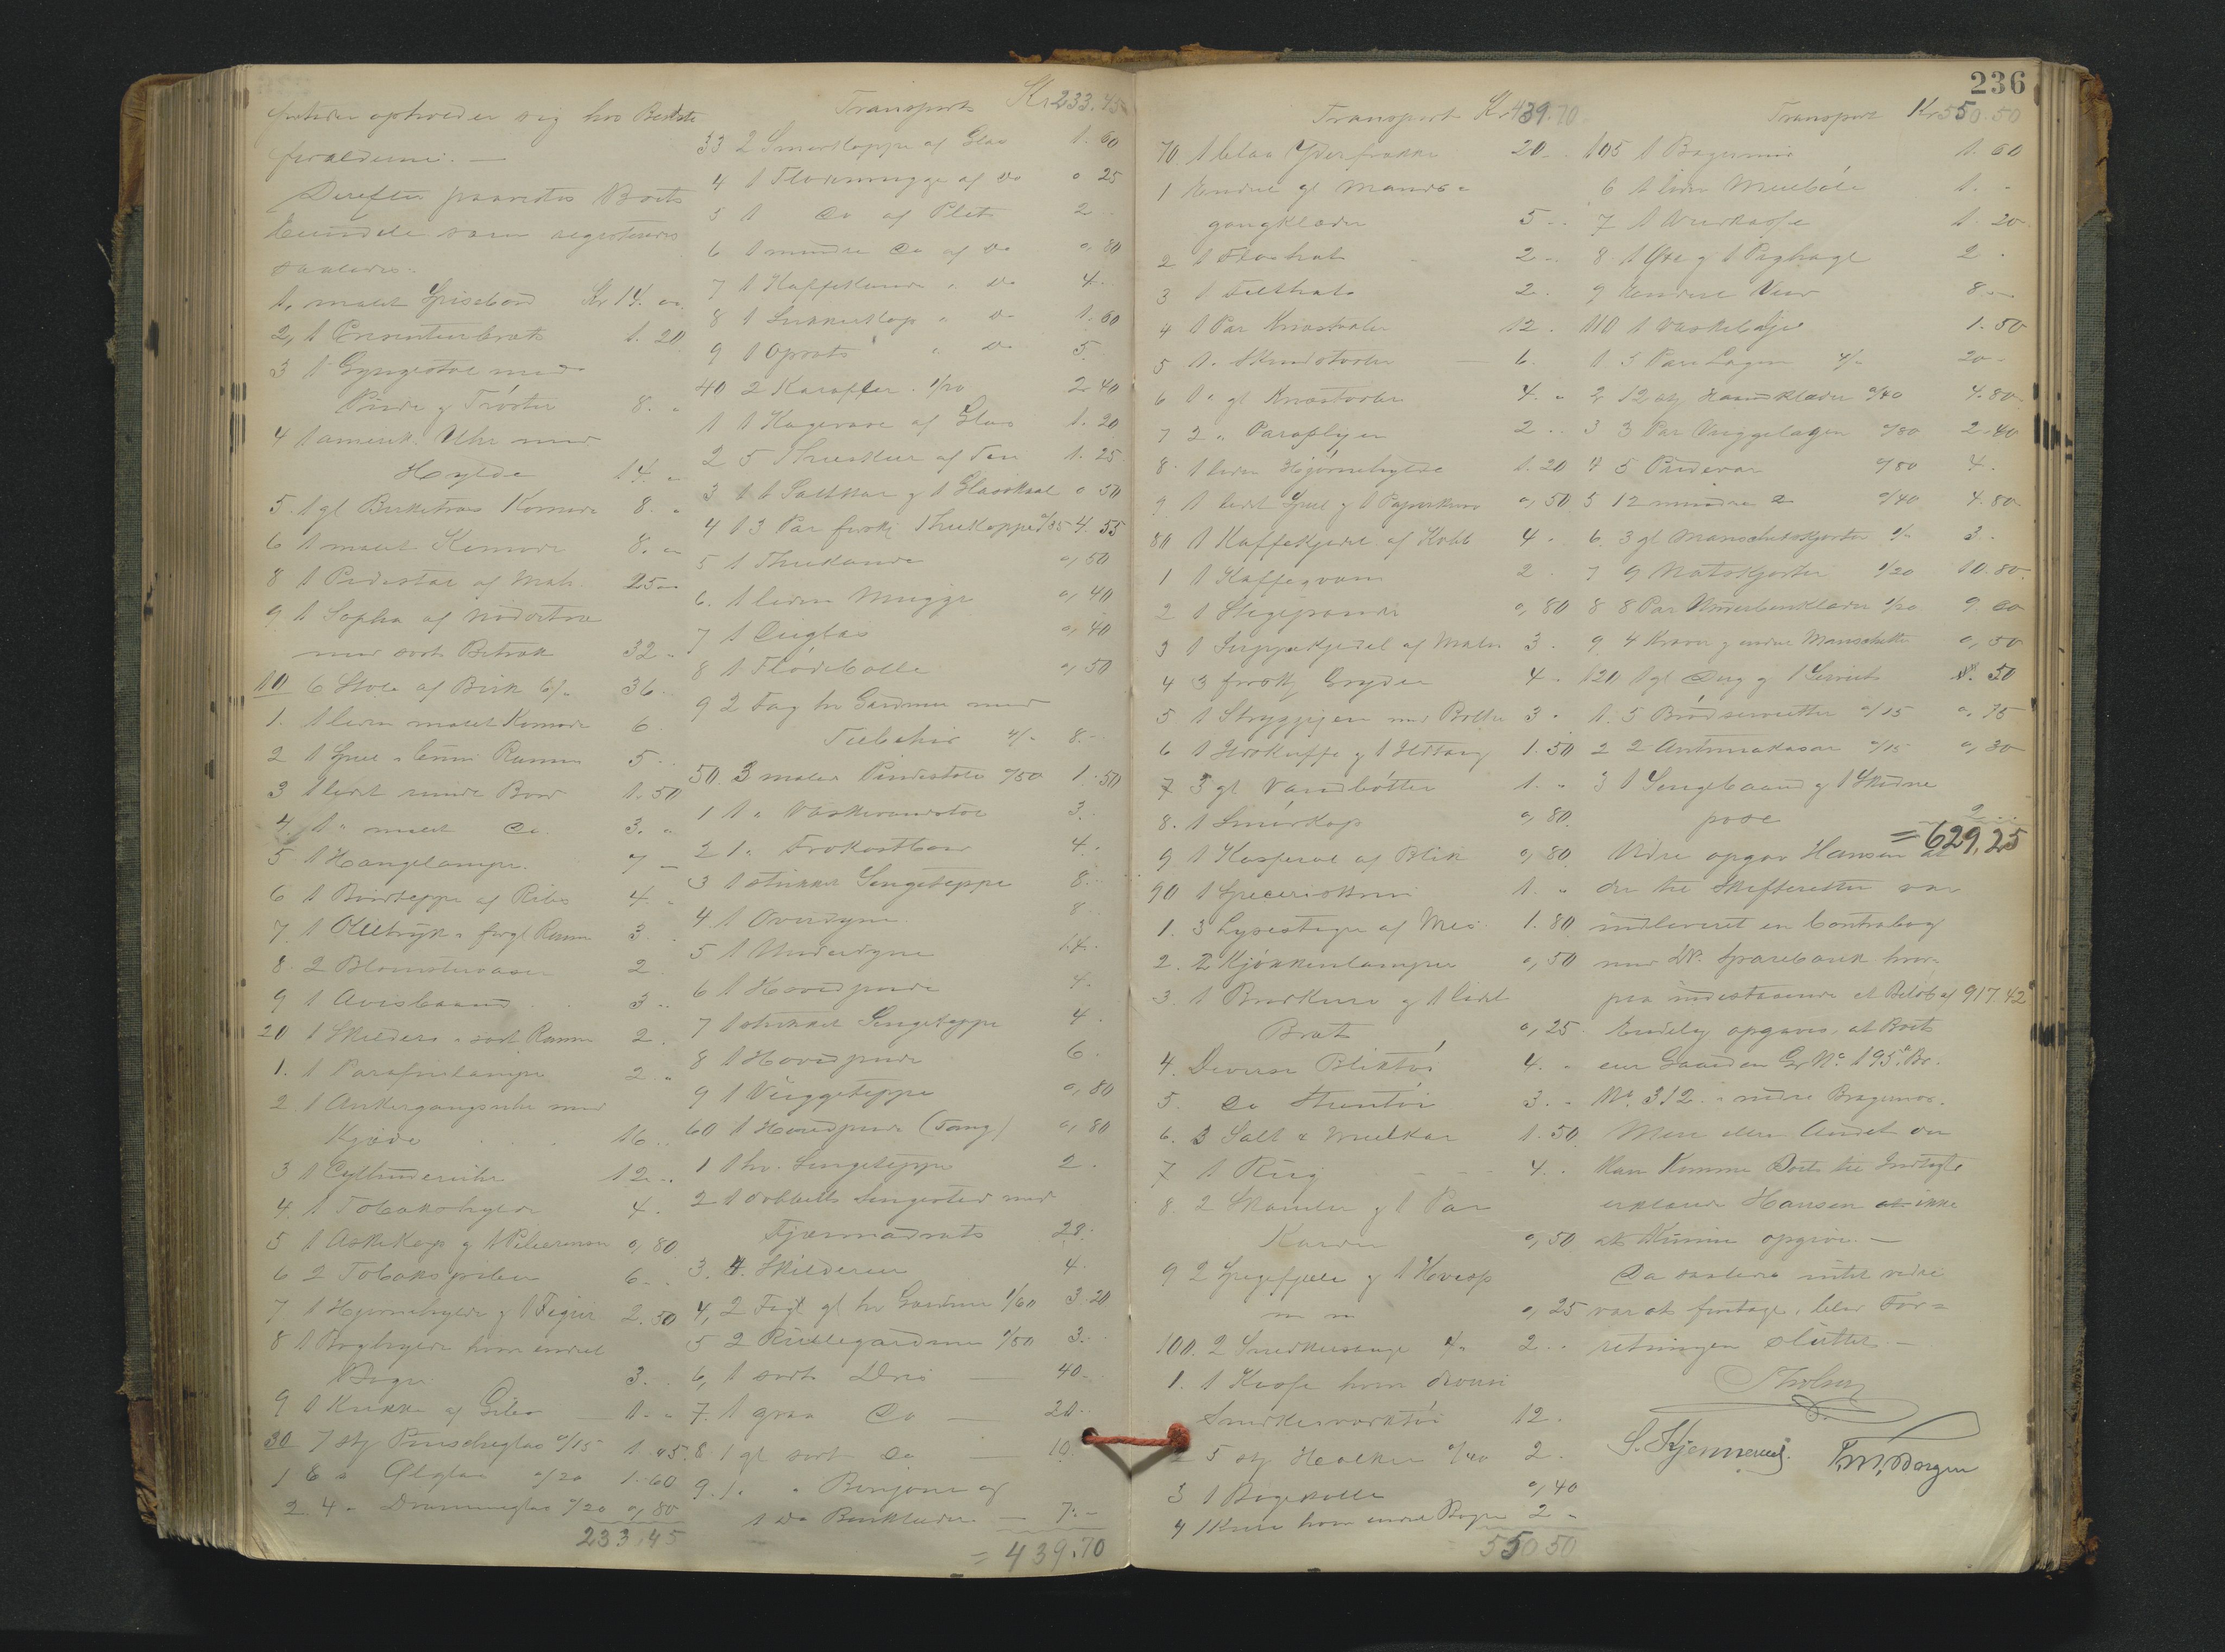 fortiden opholder sig hos Bedste
forældrene. —
Derefter paavistes Boets
Eiendele som registreredes
saaledes:
1, malet Spisebord Kr 14. "
2, 1 Presenteerbræt 1. 20
3 1 Gyngestol med
Pude og 8. "
4 1 amerik. Uhr med
Hylde 14. "
5. 1 gl Birketræs Komode 8. "
6 1 malet Komode 8. "
8 1 Pidestal af Mah. 25 "
9 1 Sopha af Nødetræ
med sort Betræk 32 "
10 6 Stole af Birk 6/" 36.
1. 1 liden malet Komode 6
2 1 Speil i brun Ramme 5 "
3 1 lidet rundt Bord 1. 50
4. 1 " malet Do. 3. "
5 1 Hængelampe. 7 —
6 1 Bordteppe af Ribs 4. "
7. 1 Olietryk i forgl Ramme 3
8 2 Blomstervaser 2
9 1 Avisbaand 3 "
20 1 Skilderi i sort Ramme 2.
1. 1 Parafinlampe 2 "
2. 1 Ankergangsuhr med
Kjæde 16 "
3 1 Cylinderuhr 12 "
4. 1 Tobakshylde 4.
5 1 Askekop og 1 0, 80
6 2 Tobakspiber 6 "
7 1 Hjørnehylde og 1 Figur 2. 50
8 1 Boghylde hvori endel
Bøger 3.
9 1 Krukke af Gibs — 1. "
30 7 stk Punscheglas a/15 1. 05
1 8 " Ølglas a/20 1. 60
2 4 " Dramneglas a/20 0, 80
233.45
Transport Kr 233.45
33 2 Smørkopper af Glas 1. 60
4 1 Flødemugge af do 0 25
5 1 do af Plet 2
6 1 mindre do af do 0, 80
7 1 Kaffekande " do 4.
8 1 Sukkerkop " do 1. 60
9 1 Opsats " do 5.
40 2 Karafler 1/20 2. 40
1 1 Kagevase af Glas 1. 20
2 5 Theeskeer af 1. 25
3 1 Saltkar og 1 Glasskaal 0 50
4 13 Par forskj Theekopper a/35 4. 55
5 1 Theekande 0, 50
6. 1 liden Mugge 0, 40
7 1 0, 40
8 1 Flødebolle 0, 50
9 2 Fag hv Gardiner med
Tilbehør 4/" 8. "
50. 3 malede Pindestole a/50 1. 50
1 1 " Vaskevandstol 3.
2 1 " Frokostbord 4.
3 1 strikket Sengeteppe 8.
4. 1 Overdyne 8
5 1 Underdyne 14.
6 1 Hovedpude 4.
7 1 strikket Sengeteppe 4.
8 1 Hovedpude 6.
9 1 Vuggeteppe 0, 80
60 1 Hovedpude (Tang) 0, 80
1 1 hv. Sengeteppe 2.
2 1 dobbelt Sengested med
Fjærmadrats 28.
3. 4. Skilderier 4.
4, 2 Fag gl hv Gardiner 1/60 3 20
5 2 Rullegardiner 1/50 3.
6, 1 sort Dres — 40 "
7. 1 graa Do — 20.
8 1 gl sort Do — 10.
9. 1 " " og
1 do Benklæder — 7. "
= 439.70
236
Transport Kr 439.70
70. 1 blaa Yderfrakke 20 "
1 Endel gl Mands
gangklæder 5 "
2 1 Floshat 2 "
3 1 Filthat 2.
4 1 Par Knæstøvler 12.
5 1 " Skindstøvler — 6.
6 1 " gl Knæstøvler 4. "
7 2 " Paraplyer 2 "
8. 1 liden Hjørnehylde 1. 20
9 1 lidet Speil og 1 Papirkurv 0, 50
80 1 Kaffekjedel af Kobb 4 "
1 1 Kaffeqværn 2
2 1 Stegepande 0, 80
3 1 Suppekjedel af Malm 3.
4 3 forskj Gryder 4.
5 1 Strygejern med Bolte 3 "
6 1 og 1 Ildtang 1. 50
7 3 gl Vandbøtter 1. "
8. 1 Smørkop 0, 80
9 1 Kasserol af Blik 0, 80
90 1 Speceriskrin 1. "
1. 3 Lysestager af Mes. 1. 80
2. 2 Kjøkkenlamper 0, 50
3. 1 Brødkurv og 1 lidet
Bræt 0, 25
4. Diverse Bliktøi 4. "
5. Do Stentøi 3. "
6. 3 Salt & Melkar 1. 50
7 1 4. "
8. 2 og 1 Par
Karder 0, 50
9 2 Spegefjæle og 1
m m 0, 25
100. 2 Snedkersauge 2 "
1. 1 Kasse hvori diverse
Snedkerværktøi 12.
2 5 stk a/40 2.
3 1 Bagekolle 0, 40
4 1 hvori endel Bøger 2 "
550 50
Transport Kr 550.50
105 1 1. 60
6 1 liden 1. "
7 1 Vedkasse 1. 20
8. 1 Øxe og 1 2.
9 Endel Ved 8. "
110 1 Vaskebalje 1. 50
1 5 Par Lagen 4/" 20 "
2 12 stk Haandklæder a/40 4. 80
3 3 Par Vuggelagen a/80 2. 40
4 5 Pudevar a/80 4.
5 12 mindre do a/40 4. 80
6. 3 gl Manschetskjorter 1/" 3.
7 9 Natskjorter 1/20 10. 80
8 8 Par Underbenklæder 1/20 9. 60
9. 4 Kraver og endel Manschetter 0, 50
120 1 gl Dug og 1 Serviet 50
1. 5 Brødservietter a/15 0, 75
2 2 Antimakasser a/15 0, 30
3 1 Sengebaand og 1
pose 2 "
= 629,25
Videre opgav Hansen at
der til Skifteretten var
indleveret en Contrabog
med Dr. Sparebank hvor-
paa indestaaende et Beløb af 917.42
Endelig opgaves, at Boet
eier Gaarden Gr No. 195 Br.
No. 312 i nedre Bragernes.
Mere eller Andet der
kan komme Boet til Indtægt
erklærede Hansen ikke
at kunne opgive. —
Da saaledes intet videre
var at foretage, blev For-
retningen sluttet. —